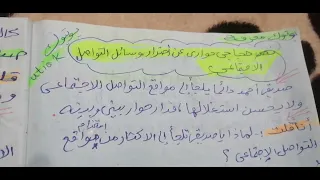 نص حجاجي حواري عن أضرار وسائل التواصل
الاجتماعي؟
صديقي أحمد دائما يلجأ إلى مواقع التواصل الاجتماعي
ولا يحسن استغلالها فدار حوار بيني وبينه
أنا قلت :- لماذا يا صديقي تلجأ إلى الاكثار من استخدام مواقع
التواصل الإجتماعي ؟